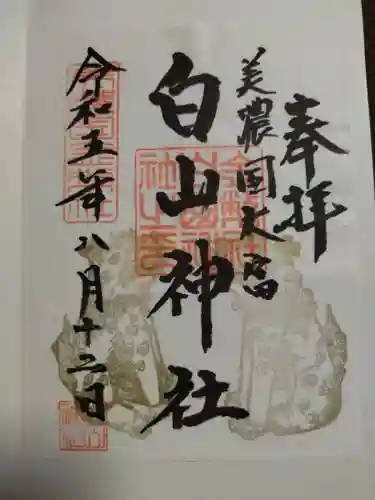 奉拝
美濃国大富
白山神社
令和五年八月十二日